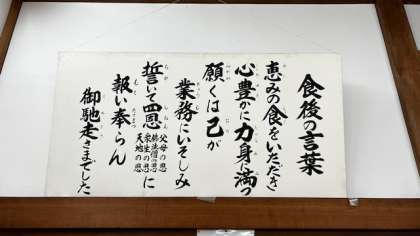 食後の言葉
恵みの食をいただき
心豊かに力身に満つ
願くは己が
業務にいそしみ
誓いて四恩に
父母の恩
衆生の恩
天地の恩
報い奉らん
御馳走さまでした